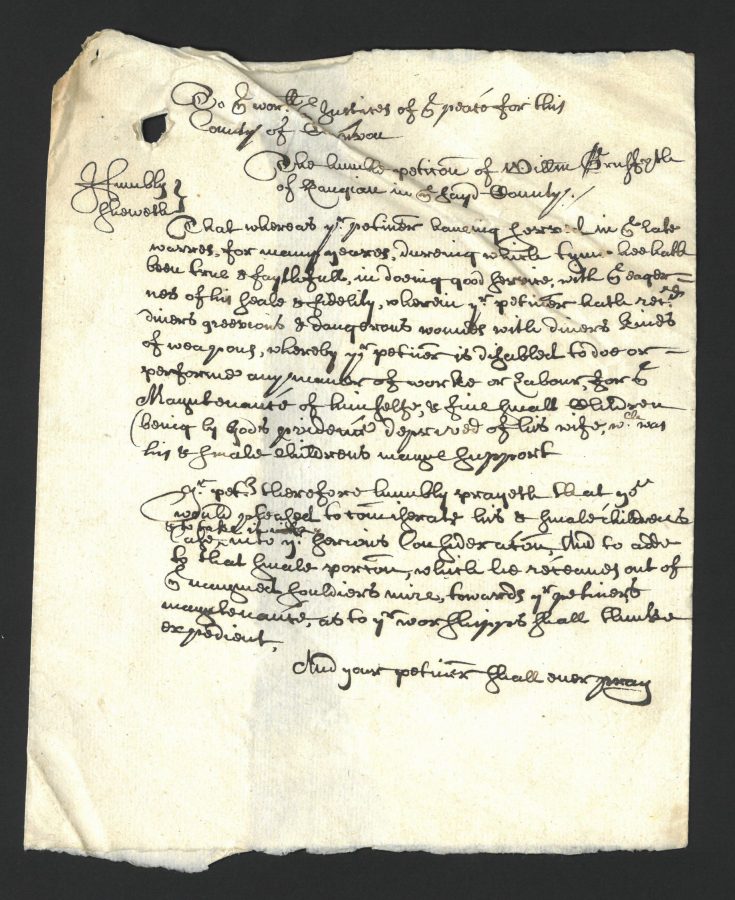 To ye worll Justices of ye peace for this
County of Carnvon
The humble peticon of Willm Gruffyth
of Llangian in ye sayd County
Humbly
sheweth
That whereas yr peticner haveing serv d in ye late
warres, for many yeares, dureing which tyme hee hath
been true & faythfull, in doeing good service, with ye eager-
nes of his heale & fidelity, wherein yr peticner hath recd
divers greevious & dangerous wounds with divers kinds
of weapons, whereby yr peticner is disabled to doe or
performe any maner of worke or labour, for ye
Mayntenance of himselfe, & five small Children
(being by gods providence deprived of his wife, wch was
his & smale Childrens mayne support
Yr petr therefore humbly prayeth that yee
would pleased to comiserate his & smale childrens
& to take it into
case, into yr serious Consideration, And to adde
to that smale porcon, which he receaves out of
ye maymed souldiers mize, towards yr peticners
mayntenance, as to yr worshipps shall thinke
expedient,
And your peticner shall ever pray